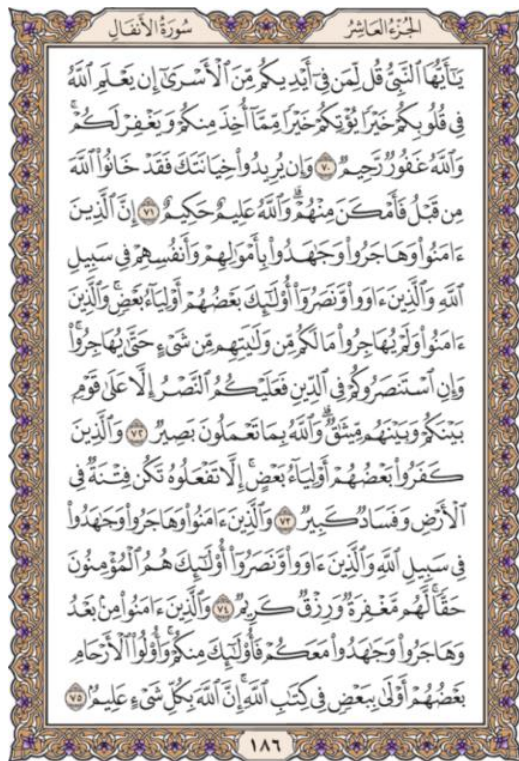 الجزء العاشر
سورة الأنفال
يَٰٓأَيُّهَا ٱلنَّبِيُّ قُل لِّمَن فِيٓ أَيْدِيكُم مِّنَ ٱلْأَسْرَىٰٓ إِن يَعْلَمِ ٱللَّهُ
فِي قُلُوبِكُمْ خَيْرًا يُؤْتِكُمْ خَيْرًا مِّمَّآ أُخِذَ مِنكُمْ وَيَغْفِرْ لَكُمْ ۗ
وَٱللَّهُ غَفُورٌ رَّحِيمٌ ٧٠ وَإِن يُرِيدُوا۟ خِيَانَتَكَ فَقَدْ خَانُوا۟ ٱللَّهَ
مِن قَبْلُ فَأَمْكَنَ مِنْهُمْ ۗ وَٱللَّهُ عَلِيمٌ حَكِيمٌ ٧١ إِنَّ ٱلَّذِينَ
ءَامَنُوا۟ وَهَاجَرُوا۟ وَجَٰهَدُوا۟ بِأَمْوَٰلِهِمْ وَأَنفُسِهِمْ فِي سَبِيلِ
ٱللَّهِ وَٱلَّذِينَ ءَاوَوا۟ وَّنَصَرُوٓا۟ أُو۟لَٰٓئِكَ بَعْضُهُمْ أَوْلِيَآءُ بَعْضٍ ۚ وَٱلَّذِينَ
ءَامَنُوا۟ وَلَمْ يُهَاجِرُوا۟ مَا لَكُم مِّن وَلَٰيَتِهِم مِّن شَيْءٍ حَتَّىٰ يُهَاجِرُوا۟ ۚ
وَإِنِ ٱسْتَنصَرُوكُمْ فِي ٱلدِّينِ فَعَلَيْكُمُ ٱلنَّصْرُ إِلَّا عَلَىٰ قَوْمٍۭ
بَيْنَكُمْ وَبَيْنَهُم مِّيثَٰقٌ ۗ وَٱللَّهُ بِمَا تَعْمَلُونَ بَصِيرٌ ٧٢ وَٱلَّذِينَ
كَفَرُوا۟ بَعْضُهُمْ أَوْلِيَآءُ بَعْضٍ ۚ إِلَّا تَفْعَلُوهُ تَكُن فِتْنَةٌ فِي
ٱلْأَرْضِ وَفَسَادٌ كَبِيرٌ ٧٣ وَٱلَّذِينَ ءَامَنُوا۟ وَهَاجَرُوا۟ وَجَٰهَدُوا۟
فِي سَبِيلِ ٱللَّهِ وَٱلَّذِينَ ءَاوَوا۟ وَّنَصَرُوٓا۟ أُو۟لَٰٓئِكَ هُمُ ٱلْمُؤْمِنُونَ
حَقًّا ۚ لَّهُم مَّغْفِرَةٌ وَرِزْقٌ كَرِيمٌ ٧٤ وَٱلَّذِينَ ءَامَنُوا۟ مِنۢ بَعْدُ
وَهَاجَرُوا۟ وَجَٰهَدُوا۟ مَعَكُمْ فَأُو۟لَٰٓئِكَ مِنكُمْ ۚ وَأُو۟لُوا۟ ٱلْأَرْحَامِ
بَعْضُهُمْ أَوْلَىٰ بِبَعْضٍ فِي كِتَٰبِ ٱللَّهِ ۗ إِنَّ ٱللَّهَ بِكُلِّ شَيْءٍ عَلِيمٌۢ ٧٥
١٨٦